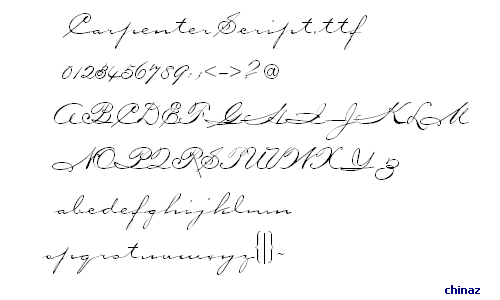 CarpenterScript.ttf
0123456789:;<->?@
ABCDEFGHIJKLM
NOPQRSTUVWXYZ
abcdefghijklmn
opqrstuvwxyz{|}~
chinaz